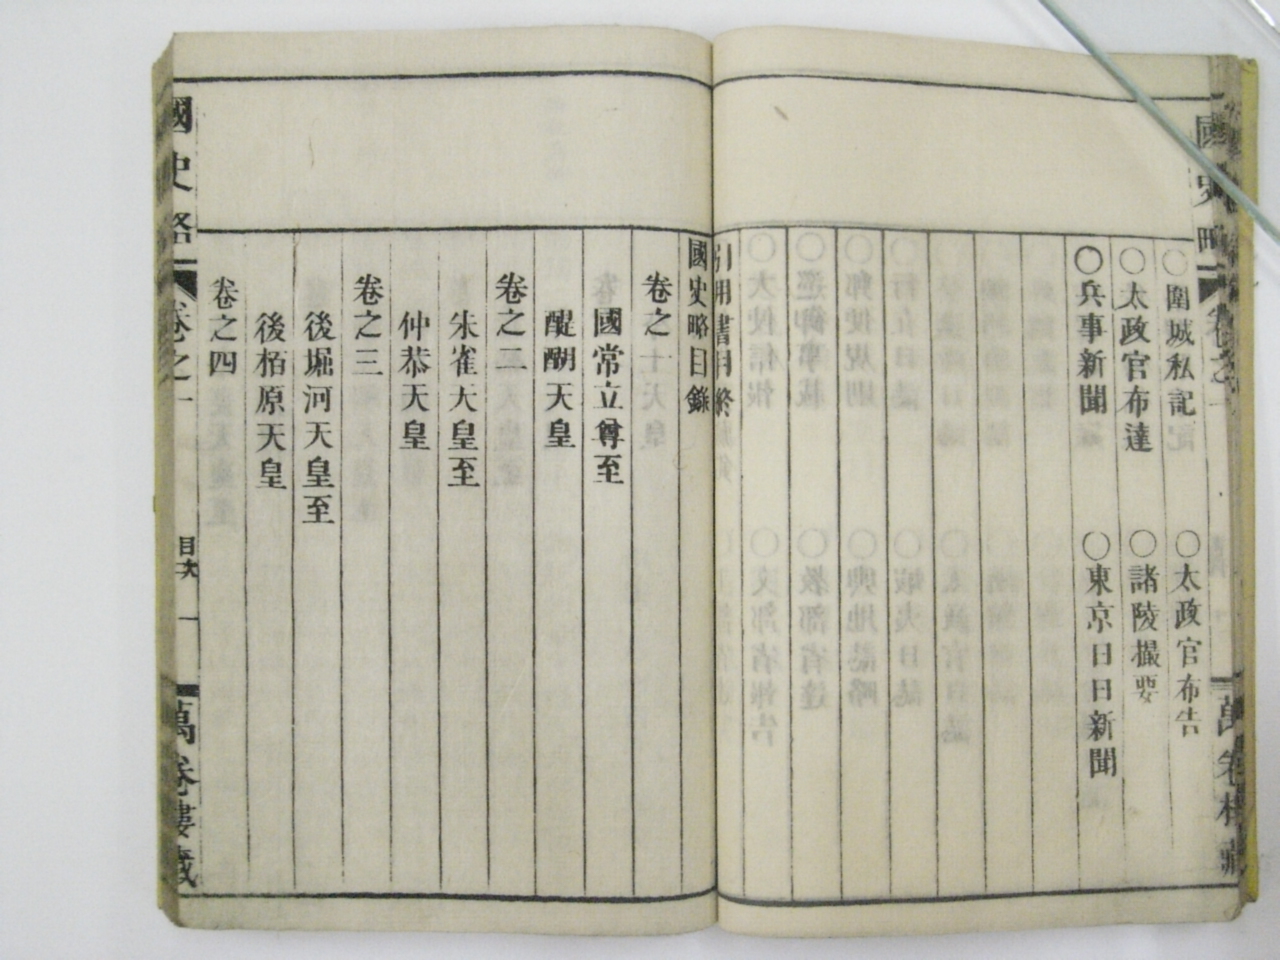 國史略
卷之一
○圍城私記　○太政官布告
○太政官布達　○諸陵撮要
○兵事新聞　○東京日日新聞
引用書目終
國史略目錄
卷之一
國常立尊至
醍醐天皇
卷之二
朱雀天皇至
仲恭天皇
卷之三
後堀河天皇至
後栢原天皇
卷之四
國史略
卷之一
目次
一
萬卷樓藏